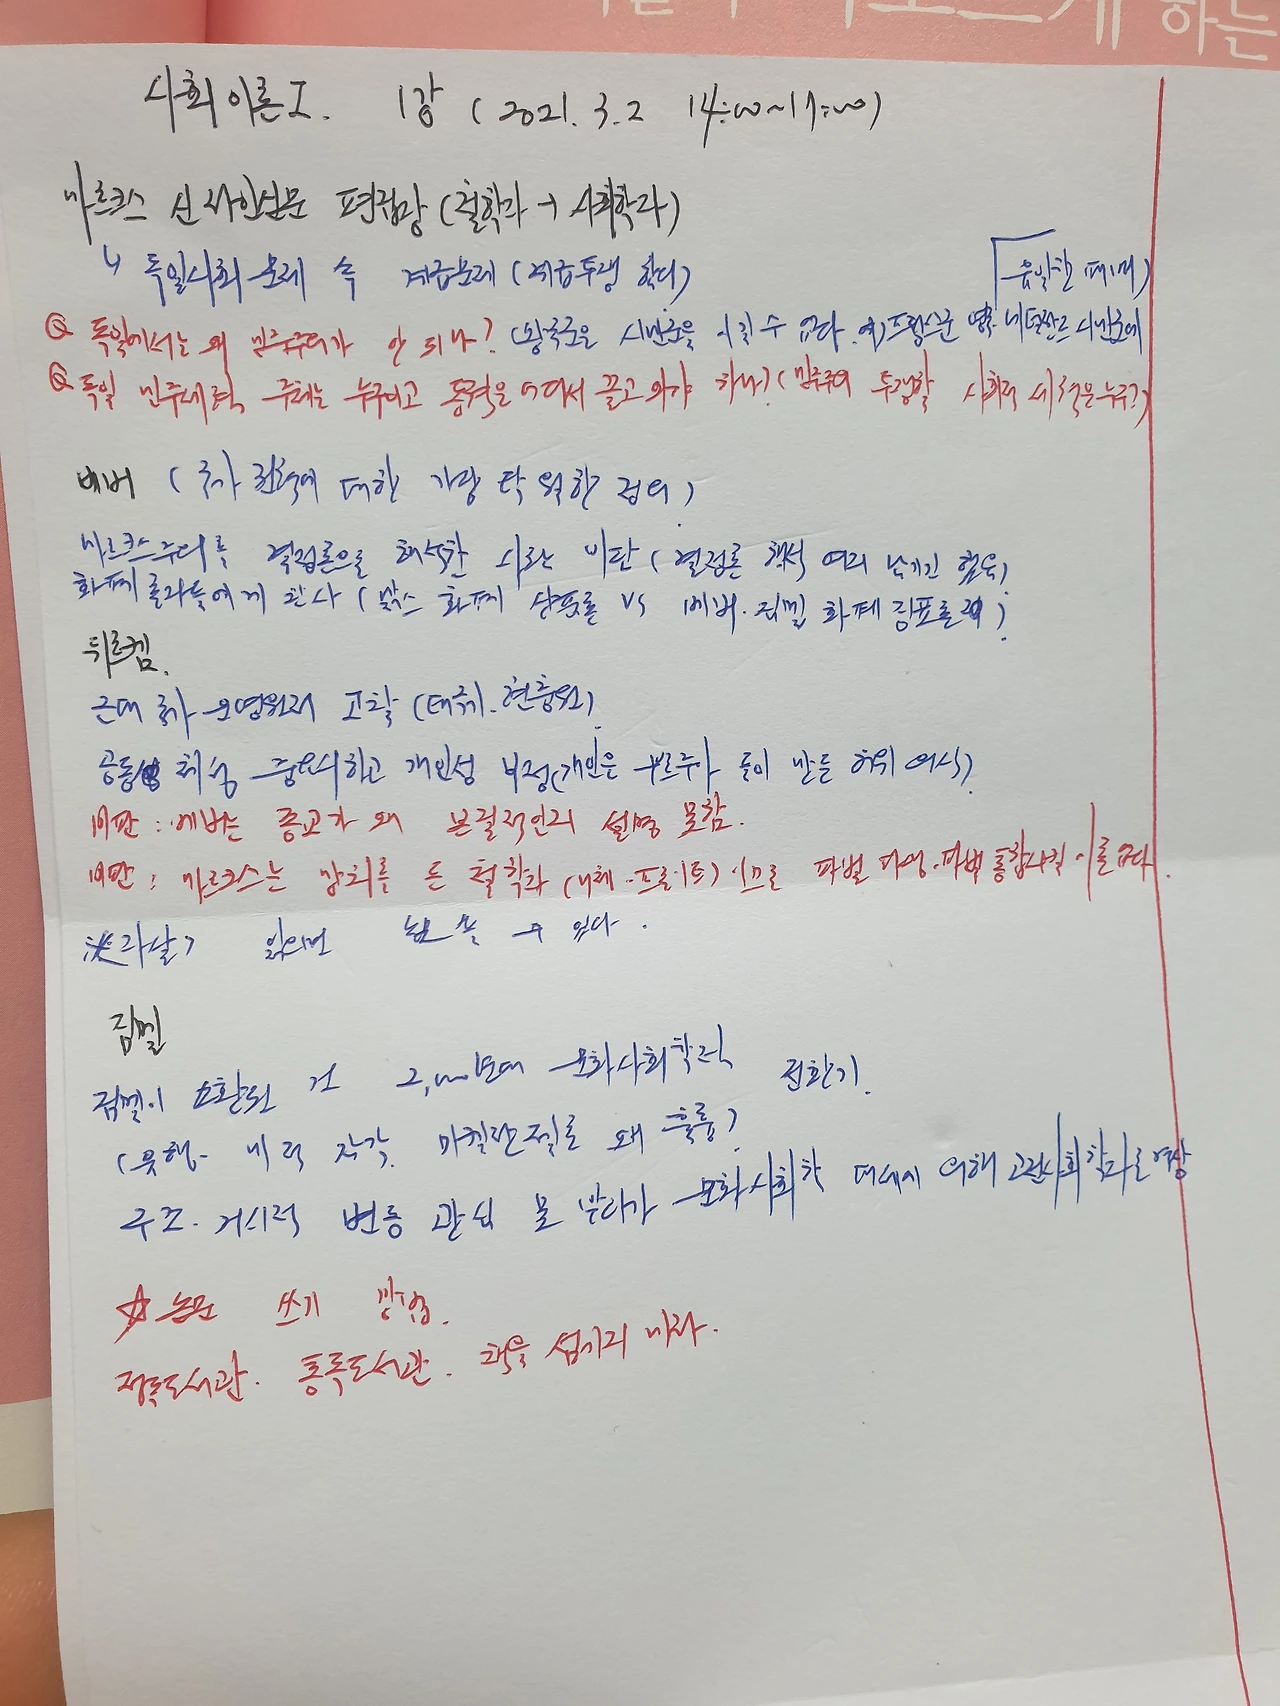 하는
사회이론I. 1강 (2021. 3. 2 14:00~17:00)
마르크스 신라인신문 편집장 (철학과 → 사회학과)
↳ 독일사회문제 속 계급문제 (계급투쟁 학디)
유일한 패배)
Q 독일에서는 왜 민주주의가 안 되나? (왕국군은 시민군을 이길 수 없다. 예) 프랑스군 네덜란드 시민군에
Q 독일 민주세력 주체는 누구이고 동력은 어디서 끌고 와야 하나? (민주주의 투쟁할 사회적 세력은 누구?)
베버 (국가 권력에 대한 가장 탁월한 정의)
마르크스주의를 결정론으로 해석한 사람 비판 (결정론 해석 여지 남기긴 했음)
화폐론자들에게 찬사 (맑스 화폐 상품론 vs 베버·짐멜 화폐 징표론)
뒤르켐.
근대 국가 운영원리 고찰 (태극기·현충원)
공동체성 중요시하고 개인성 부정 (개인은 부르주아 들이 만든 허위 의식)
비판 : 베버는 종교가 왜 본질적인지 설명 못함.
비판 : 마르크스는 망치를 든 철학자 (니체·프로이트) 이므로 파벌 다양·파벌 통합시킬 이론 없다.
※ 자살> 읽으면 논문 쓸 수 있다.
짐멜
짐멜이 소환된 건 2,000년대 문화사회학적 전환기.
(유행·내적 자각. 마킬란젤로 왜 훌륭?)
구조·거시적 변동 관심 못 받다가 문화사회학 대세에 의해 고전사회학자로 영상
☆ 논문 쓰기 방법.
정독도서관. 통독도서관. 책을 섬기러 가라.